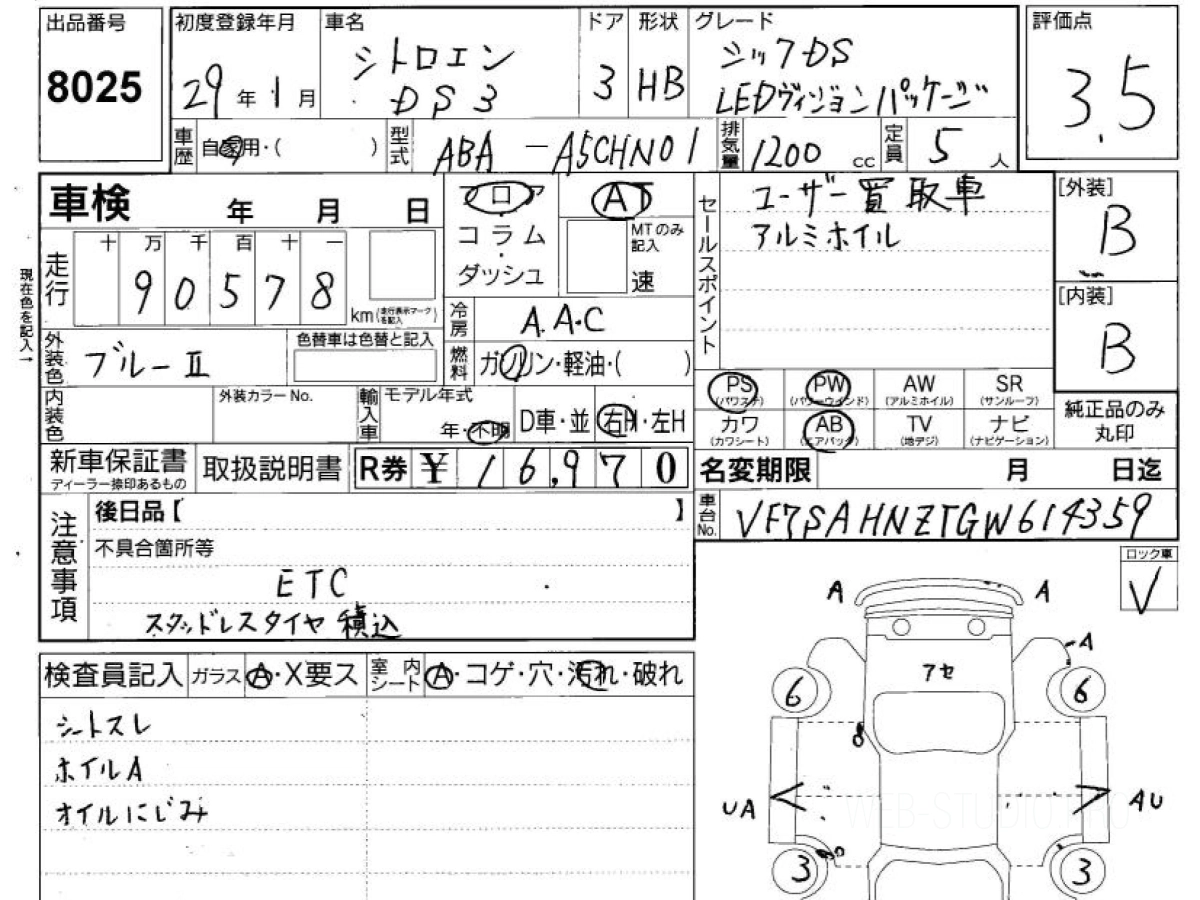 出品番号
8025
初度登録年月 車名 ドア 形状 グレード
29年1月 シトロエン DS3 3 HB シックDS
LEDヴィジョンパッケージ
評価点
3.5
車歴 自家用・( ) 型式 ABA-A5CHN01 排気量 1200cc 定員 5人
車検 年 月 日
フロア AT
コラム
ダッシュ
MTのみ記入
速
走行
十 万 千 百 十 一
90578
km(走行表示マークを記入)
現在色を記入→
冷房 A.A.C
外装色 ブルーⅡ
色替車は色替と記入
燃料 ガソリン・軽油・( )
内装色
外装カラーNo.
輸入車 モデル年式
年・不明 D車・並 右H・左H
セールスポイント
ユーザー買取車
アルミホイル
[外装]
B
[内装]
B
PS (パワステ) PW (パワーウインド) AW (アルミホイル) SR (サンルーフ)
カワ (カワシート) AB (エアバッグ) TV (地デジ) ナビ (ナビゲーション)
純正品のみ
丸印
新車保証書 ディーラー捺印あるもの 取扱説明書 R券 ¥16,970
名変期限 月 日迄
車台No. VF7SAHNZTGW614359
注意事項
後日品【 】
不具合箇所等
ETC
スタッドレスタイヤ積込
ロック車
V
検査員記入 ガラス A・X要ス 室内シート A・コゲ・穴・汚れ・破れ
シートスレ
ホイルA
オイルにじみ
A A
A
アセ
6 6
UA AU
3 3
WEB-STUDIO.PRO